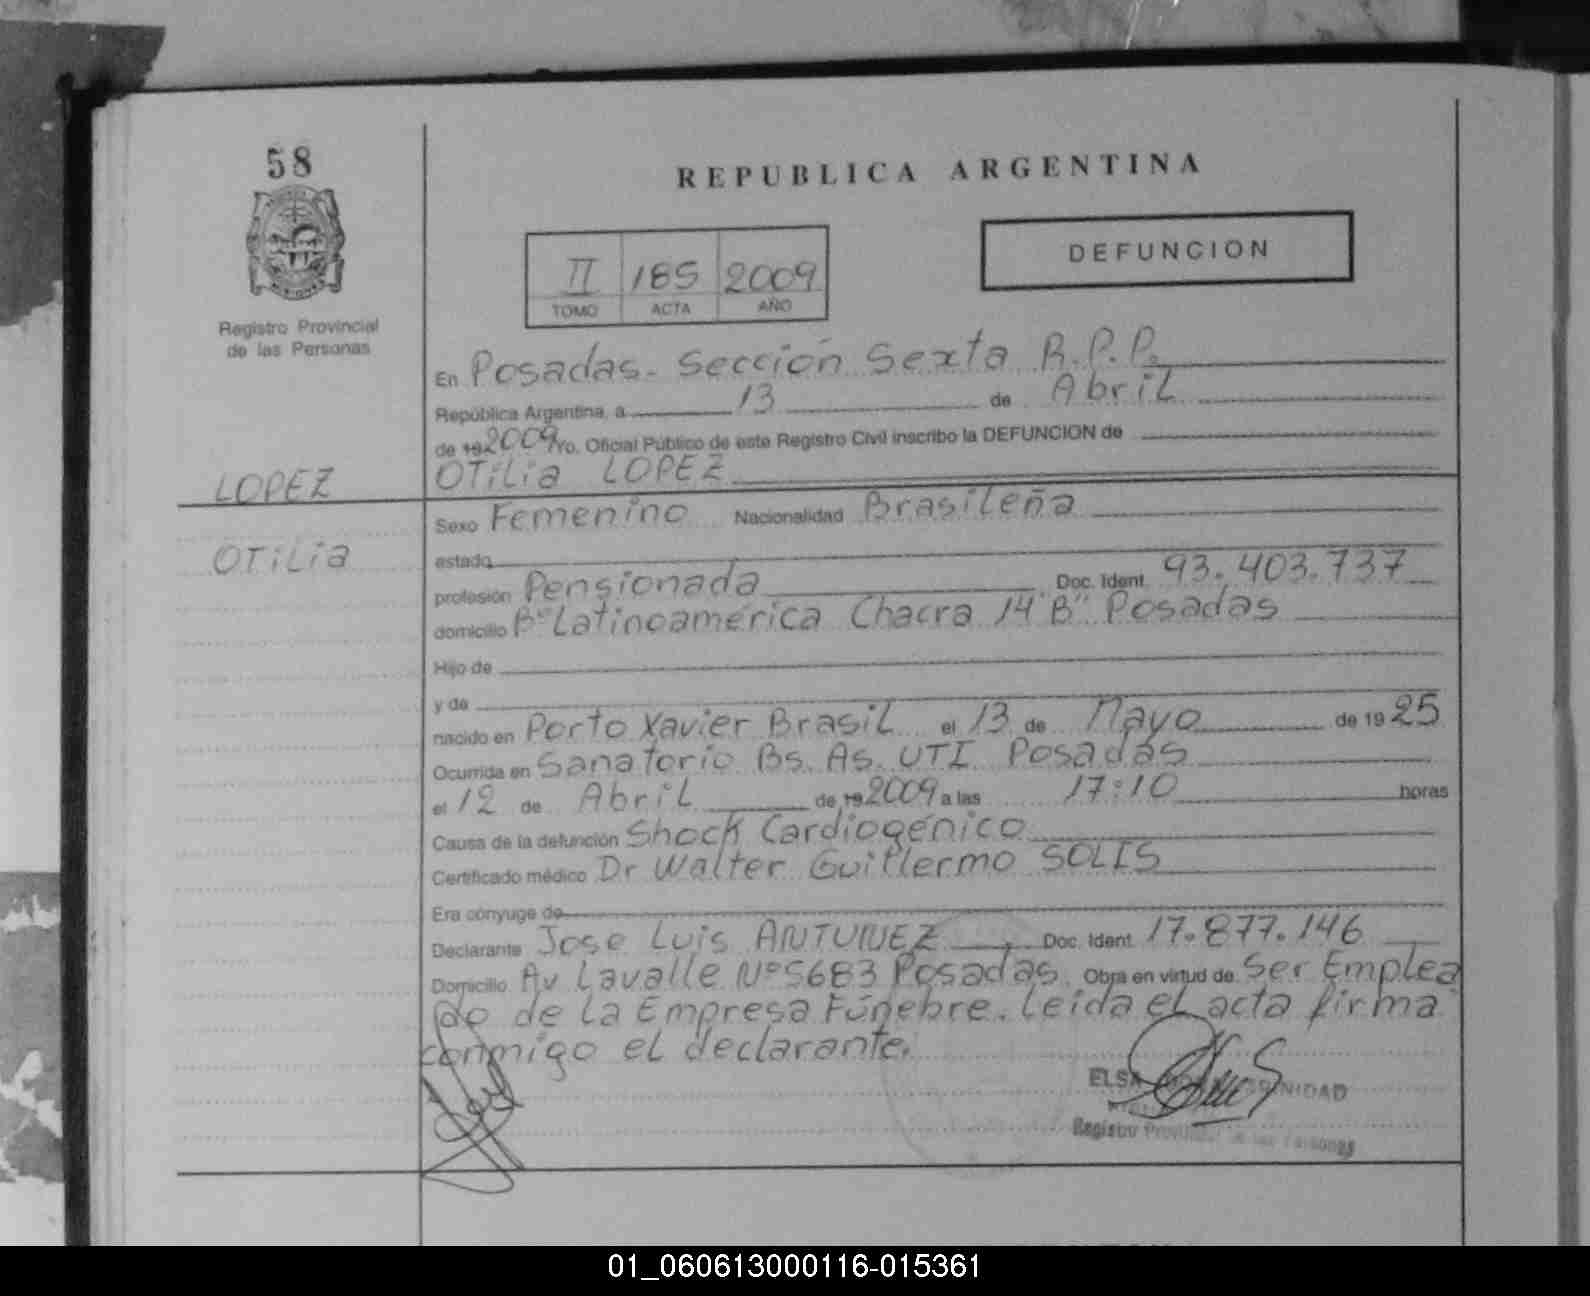 58
REPUBLICA ARGENTINA
DEFUNCION
II 185 2009
TOMO ACTA AÑO
Registro Provincial
de las Personas
En Posadas. Sección Sexta R.P.P.
República Argentina, a 13 de Abril
de 19 2009 Yo, Oficial Público de este Registro Civil inscribo la DEFUNCION de
LOPEZ OTiLia LOPEZ
Sexo Femenino Nacionalidad Brasileña
OTiLia
estado
profesión Pensionada Doc. Ident. 93.403.737
domicilio Bº Latinoamérica Chacra 14 "B" Posadas
Hijo de
y de
nacido en Porto Xavier Brasil el 13 de Mayo de 19 25
Ocurrida en Sanatorio Bs. As. UTI Posadas
el 12 de Abril de 19 2009 a las 17:10 horas
Causa de la defunción Shock Cardiogénico
Certificado médico Dr Walter Guillermo SOLIS
Era cónyuge de
Declarante Jose Luis ANTUNEZ Doc. Ident. 17.877.146
Domicilio Av Lavalle Nº 5683 Posadas. Obra en virtud de Ser Emplea
do de la Empresa Fúnebre. Leida el acta firma
conmigo el declarante.
ELSA TRINIDAD
Registro Provincial de las Personas
01_060613000116-015361